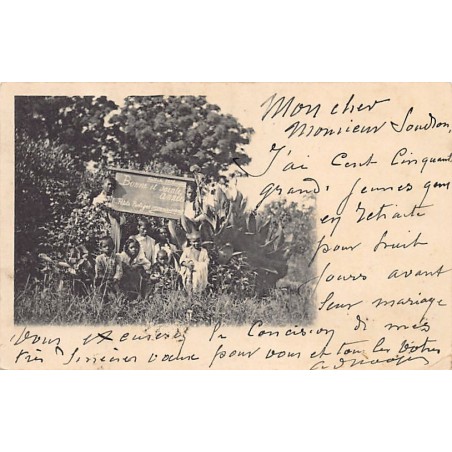 Bonne et sainte
année
Mon cher
Monsieur
J'ai Cent Cinquante
grands jeunes gens
en retraite
pour huit
jours avant
leur mariage
Vous excuserez la Concision de mes
très sincères vœux pour vous et tous les vôtres